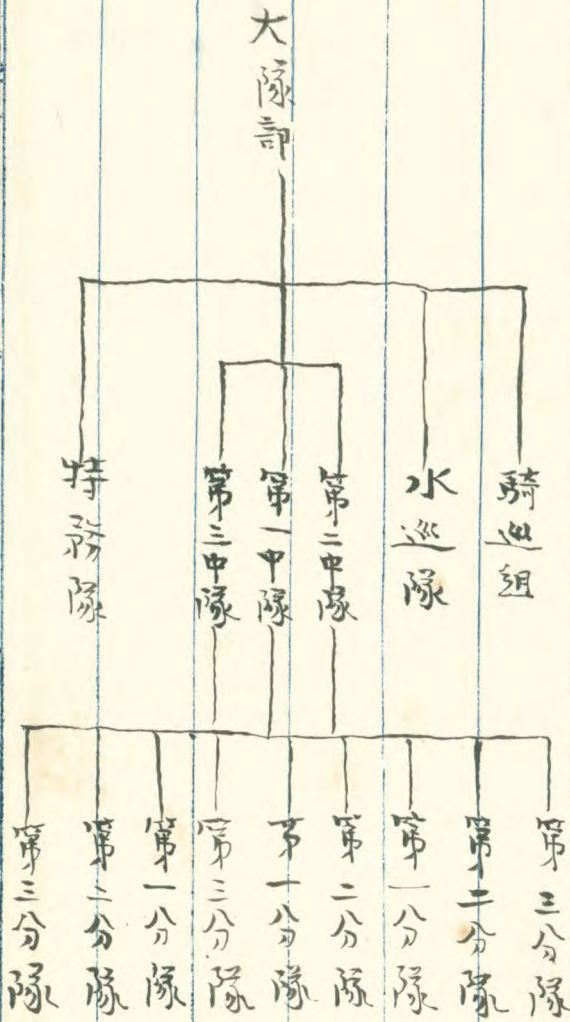 大隊部
騎巡組
水巡隊
第二中隊
第一中隊
第三中隊
特務隊
第三分隊
第二分隊
第一分隊
第二分隊
第一分隊
第三分隊
第一分隊
第二分隊
第三分隊